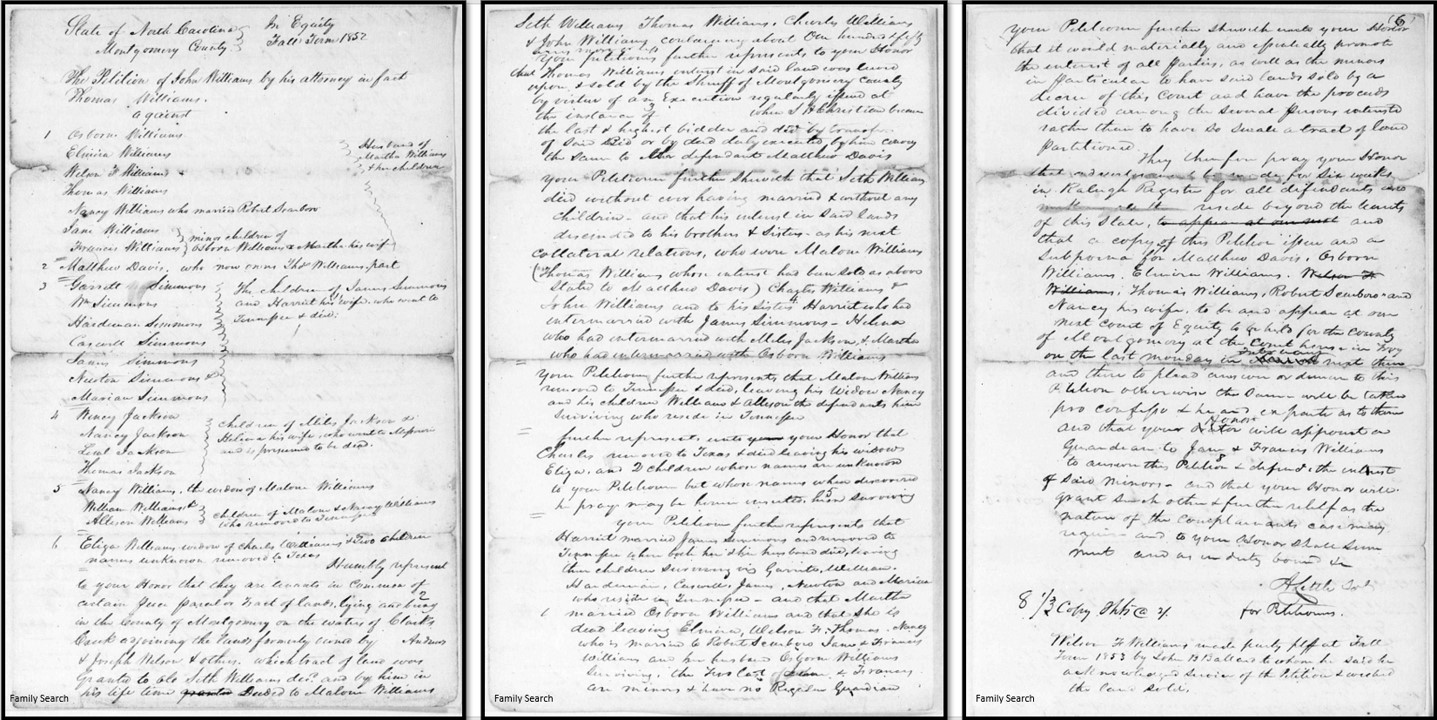 State of North Carolina } In Equity
Montgomery County } Fall Term 1852
The Petition of John Williams by his attorney in fact
Thomas Williams.
against
1 Osborn Williams
Elmira Williams
Wilson F Williams
Thomas Williams
Husband of
Martha Williams
& her children
Nancy Williams who married Robert Scarboro
Jane Williams } minor children of
Francis Williams } Osborn Williams & Martha his wife
2 Matthew Davis, who now owns Thos Williams, part
3 Garrett Simmons
Wm Simmons
Hardeman Simmons
Caswell Simmons
James Simmons
Newton Simmons &
Marian Simmons
The children of James Simmons
and Harriet his wife, who went to
Tennessee & died.
4 Wency Jackson
Nancy Jackson
Jackson
Thomas Jackson
children of Miles Jackson &
Helina his wife, who went to Missouri
and is presumed to be dead
5 Nancy Williams, the widow of Malone Williams
William Williams &
Allison Williams
children of Malone & Nancy Williams
who removed to Tennessee
6 Eliza Williams widow of Charles Williams & Two children
names unknown removed to Texas
Humbly represent
to your Honor that they are tenants in common of
certain Parcel or Tract of land, lying and being
in the County of Montgomery on the waters of Clarks
Creek adjoining the lands formerly owned by Andrews
& Joseph Nelson & others. which tract of land was
Granted to old Seth Williams decd. and by him in
his life time granted Deeded to Malone Williams
Family Search
Seth Williams Thomas Williams, Charles Williams
& John Williams containing about One hundred & fifty
your petitioner further represents to your Honor
that Thomas Williams interest in said land was levied
upon & sold by the Sheriff of Montgomery County
by virtue of an Execution regularly issued at
the instance of when J H Christian became
the last & highest bidder and did by transfer
of said Bid or by deed duly executed by him convey
the same to the defendant Matthew Davis
Your Petitioner further Sheweth that Seth Williams
died without ever having married & without any
children - and that his interest in said lands
descended to his brothers & Sisters as his next
collateral relations, who were Malone Williams
(Thomas Williams whose interest had been sold as above
stated to Matthew Davis) Charles Williams &
John Williams and to his Sisters Harriet who had
intermarried with James Simmons - Helina
who had intermarried with Miles Jackson, & Martha
who had intermarried with Osborn Williams
Your Petitioner further represents that Malone Williams
removed to Tennessee & died, leaving his Widow Nancy
and his children William & Allison the defendants him
surviving who reside in Tennessee
further represents unto your your Honor that
Charles removed to Texas & died leaving his widow
Eliza, and 2 children whose names are unknown
to your Petitioner but whose names when discovered
he prays may be herein inserted, him surviving
your Petitioner further represents that
Harriet married James Simmons and removed to
Tennessee when both her & her husband died, leaving
their children surviving viz Garrett, William,
Hardeman, Caswell, James, Newton and Marian
who reside in Tennessee - and that Martha
married Osborn Williams and that she is
dead leaving Elmira, Wilson F. Thomas, Nancy
who is married to Robert Scarboro Jane & Francis
Williams and her husband Osborn Williams
surviving, the two last & Francis
are minors & have no Regular Guardian
Family Search
(6)
Your Petitioner further sheweth unto your Honor
that it would materially and essentially promote
the interest of all parties, as well as the minors
in particular to have said lands sold by a
decree of this Court and have the proceeds
divided among the several persons interested
rather than to have so small a tract of land
partitioned.
They therefore pray your Honor
that advertisement be made for six weeks
in Raleigh Register for all defendants who
reside beyond the limits
of this State, to appear at our next and
that a copy of this Petition issue and a
subpoena for Matthew Davis, Osborn
Williams, Elmira Williams, Wilson F.
Williams, Thomas Williams, Robert Scarboro and
Nancy his wife, to be and appear at our
next Court of Equity to be held for the County
of Montgomery at the Court house in Troy
on the last monday in next then
and there to plead answer or demur to this
Petition otherwise the same will be taken
pro confesso & heard ex parte as to them
and that your Honor will appoint a
Guardian to Jane & Francis Williams
to answer this Petition & defend the interest
of said minors - and that your Honor will
grant such other & further relief as the
nature of the complainants case may
require and to your Honor shall seem
meet and as in duty bound &c
for Petitioners.
8 1/3 Copy Shts @
Wilson F Williams made party plff at Fall
Term 1853 by John B Ballard to whom he said he
acknowledged service of the Petition & wished
the land sold.
Family Search